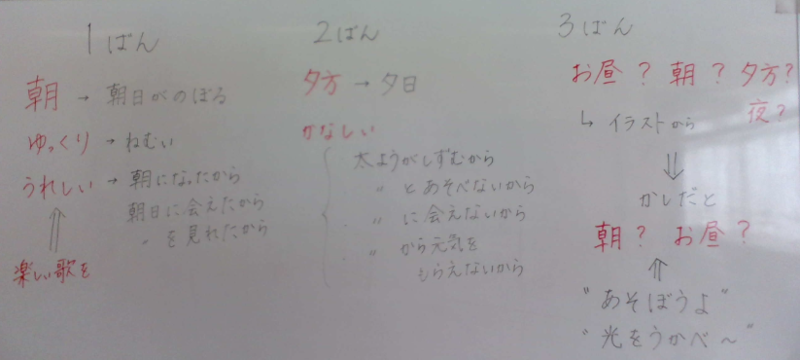 1ばん
朝 → 朝日がのぼる
ゆっくり → ねむい
うれしい → 朝になったから
朝日に会えたから
〃 を見れたから
⇑
楽しい歌を
2ばん
夕方 → 夕日
かなしい
太ようがしずむから
〃 とあそべないから
〃 に会えないから
〃 から元気を
もらえないから
3ばん
お昼? 朝? 夕方?
夜?
↳ イラストから
⇓
かしだと
朝? お昼?
⇑
"あそぼうよ"
"光をうかべ～"